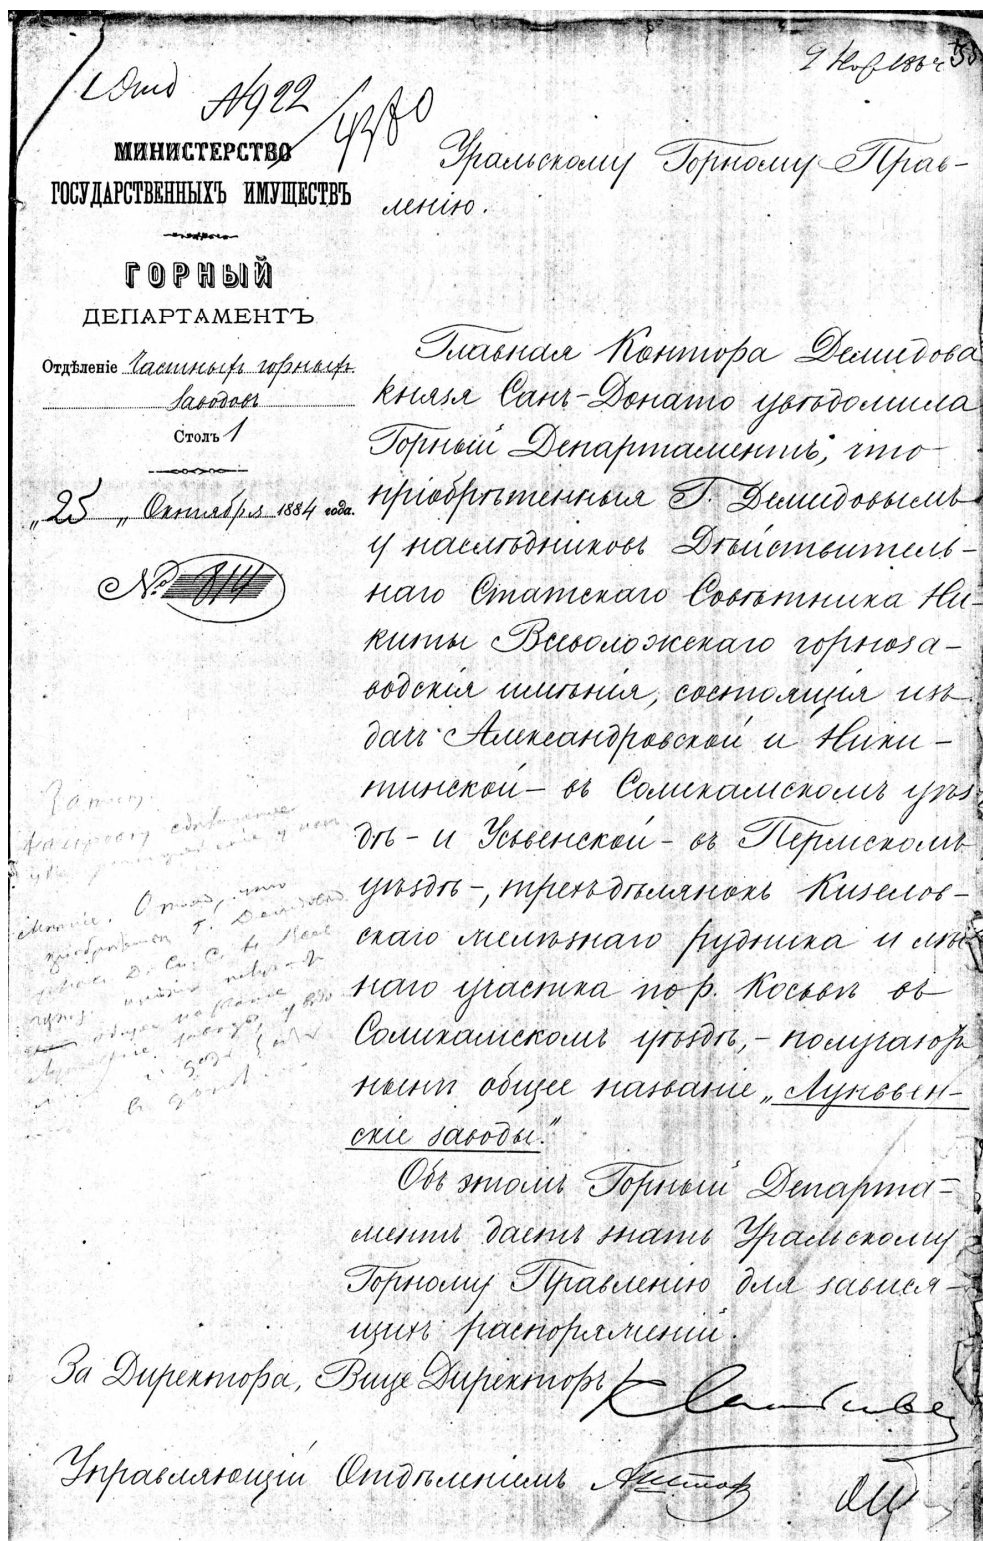 9 Ноя. 1884
1 Отд
№ 922
4380
МИНИСТЕРСТВО
ГОСУДАРСТВЕННЫХЪ ИМУЩЕСТВЪ
ГОРНЫЙ
ДЕПАРТАМЕНТЪ
Отдѣленіе Частныхъ горныхъ
заводовъ
Столъ 1
„25„ Октября 1884 года.
№ 814
Уральскому Горному Прав-
ленію.
Главная Контора Демидова
князя Санъ-Донато увѣдомила
Горный Департаментъ, что
пріобрѣтенныя Г. Демидовымъ
у наслѣдниковъ Дѣйствитель-
наго Статскаго Совѣтника Ни-
киты Всеволожскаго горноза-
водскія имѣнія, состоящія изъ
дачъ Александровской и Ники-
тинской - въ Соликамскомъ уѣз
дѣ - и Усьвенской - въ Пермскомъ
уѣздѣ -, трехъ дѣлянокъ Кизелов-
скаго желѣзнаго рудника и лѣс
наго участка по р. Косьвѣ въ
Соликамскомъ уѣздѣ, - получаютъ
нынѣ общее названіе „Луньвен-
скіе заводы."
Объ этомъ Горный Департа-
ментъ даетъ знать Уральскому
Горному Правленію для завися-
щихъ распоряженій.
За Директора, Вице Директоръ
Управляющій Отдѣленіемъ